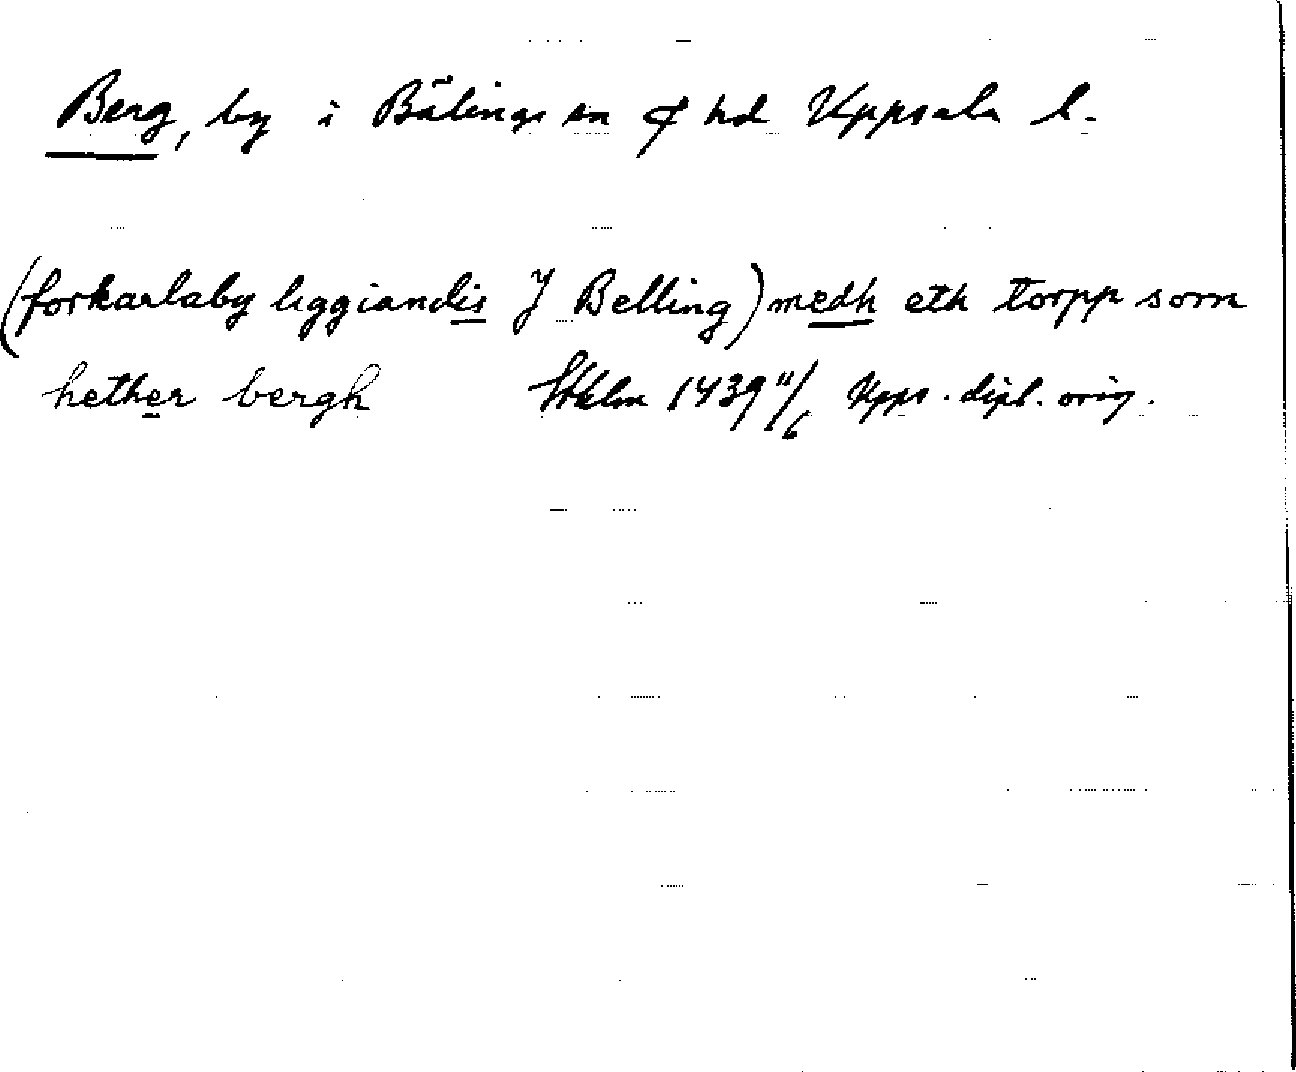 Berg, by i Bälings sn & hd Uppsala l.
(forkarlaby liggiandis J Belling) medh eth torpp som
hether bergh Sthlm 1439 11/6 Upps. dipl. orig.